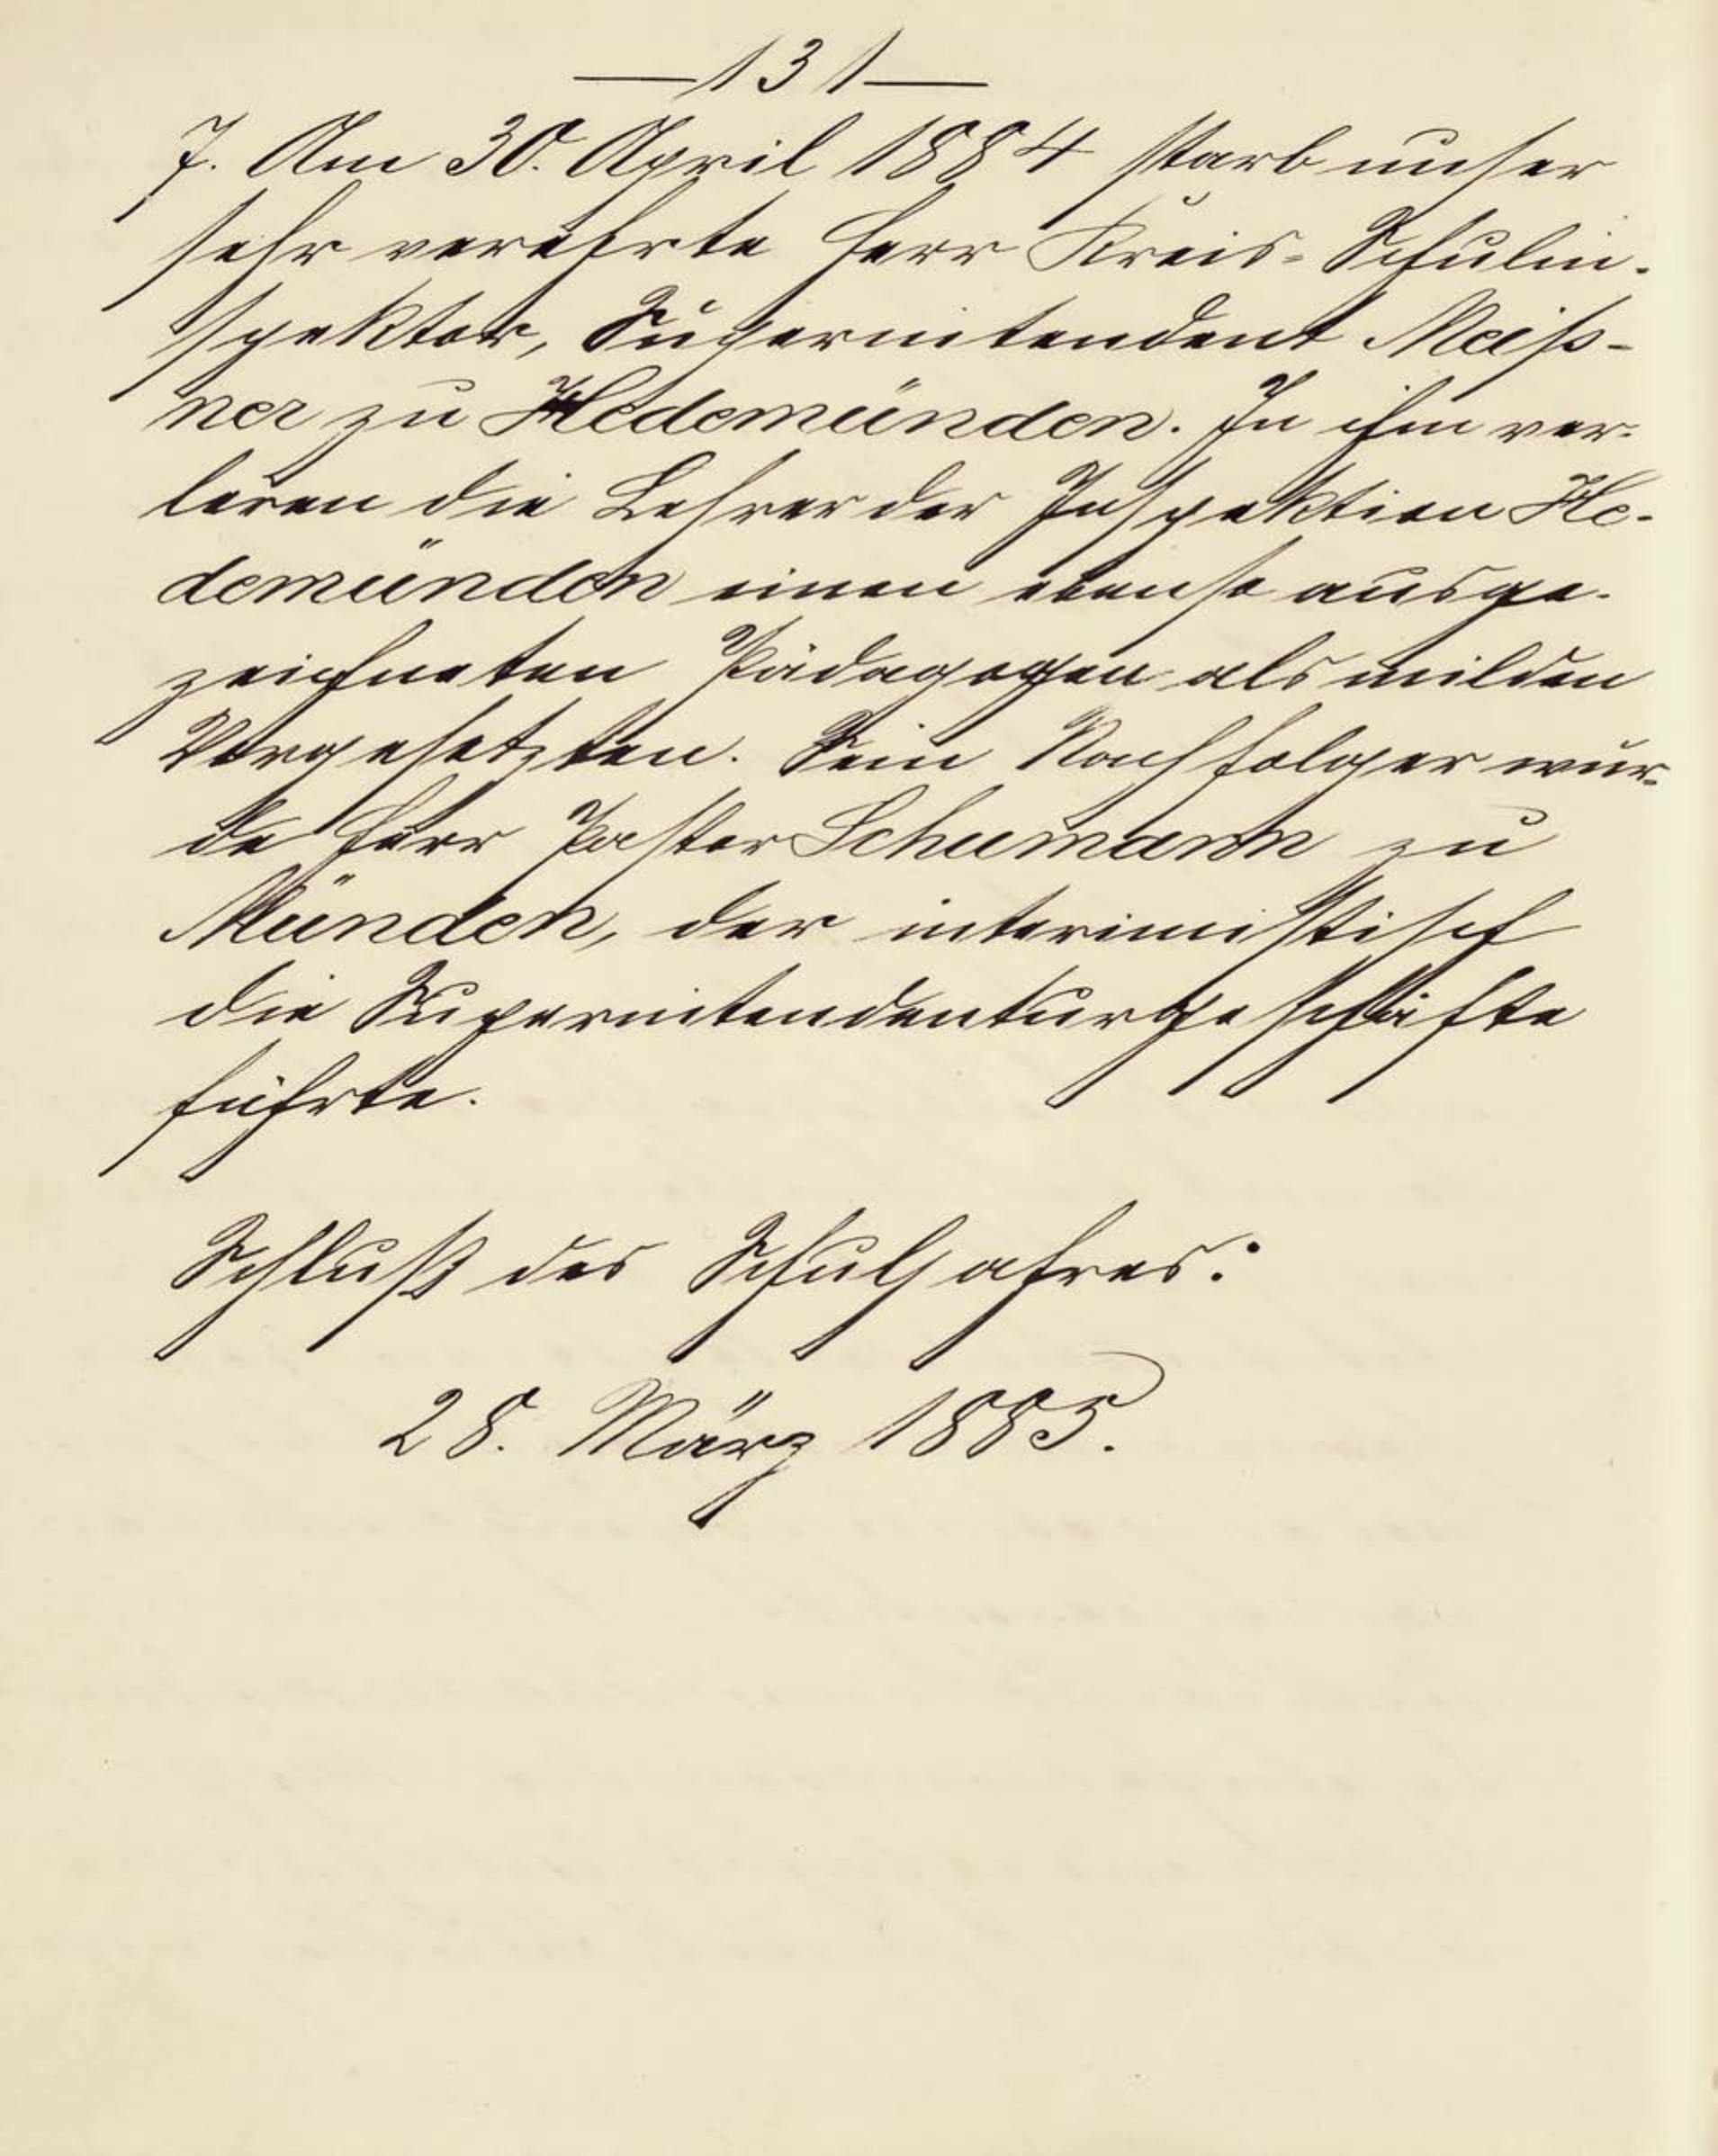 —131—
7. Am 30. April 1884 starb unser
sehr verehrte Herr Kreis-Schulin-
spektor, Superintendent Meiß-
ner zu Hedemünden. In ihm ver-
loren die Lehrer der Inspektion He-
demünden einen ebenso ausge-
zeichneten Pädagogen als milden
Vorgesetzten. Sein Nachfolger wur-
de Herr Pastor Schumann zu
Münden, der interimistisch
die Superintendenturgeschäfte
führte.
Schluß des Schuljahres:
28. März 1885.